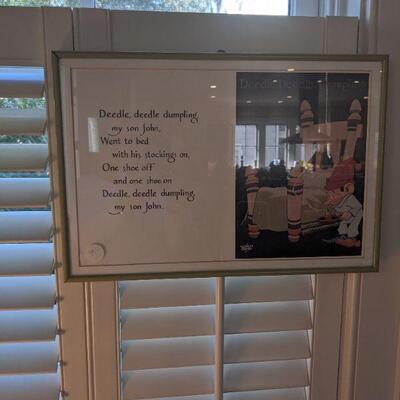 Deedle, deedle dumpling,
my son John,
Went to bed
with his stockings on,
One shoe off
and one shoe on
Deedle, deedle dumpling,
my son John.
Deedle Deedle Dumpling